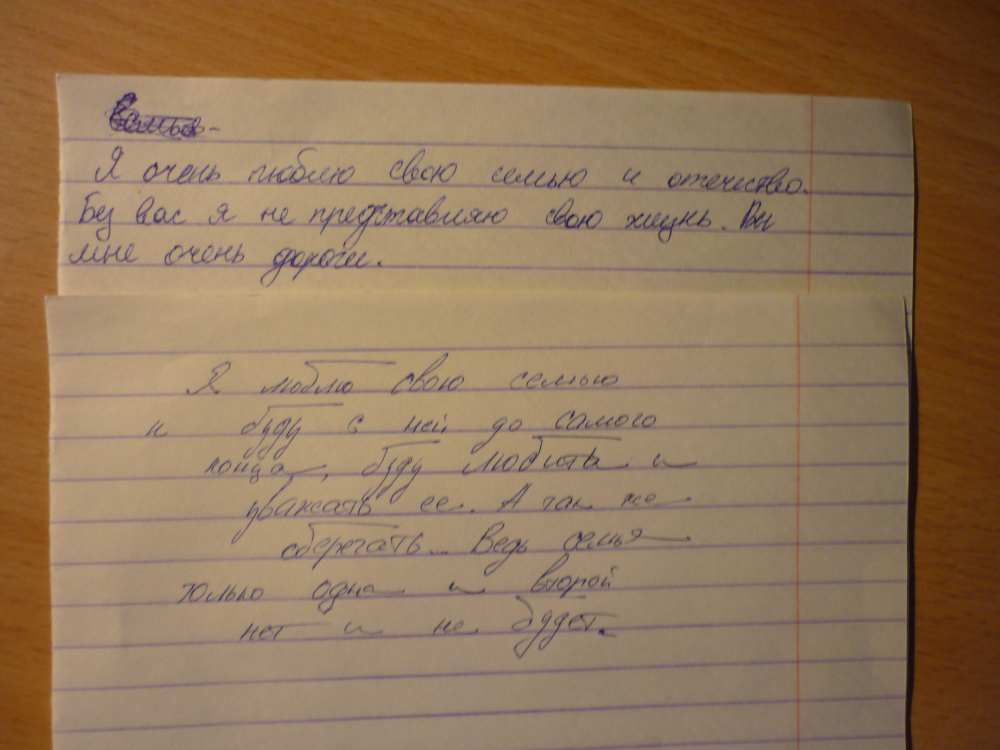 Семья-
Я очень люблю свою семью и отечество.
Без вас я не представляю свою жизнь. Вы
мне очень дороги.
Я люблю свою семью
и буду с ней до самого
конца, буду любить и
уважать ее. А так же
сберегать. Ведь семья
только одна и второй
нет и не будет.